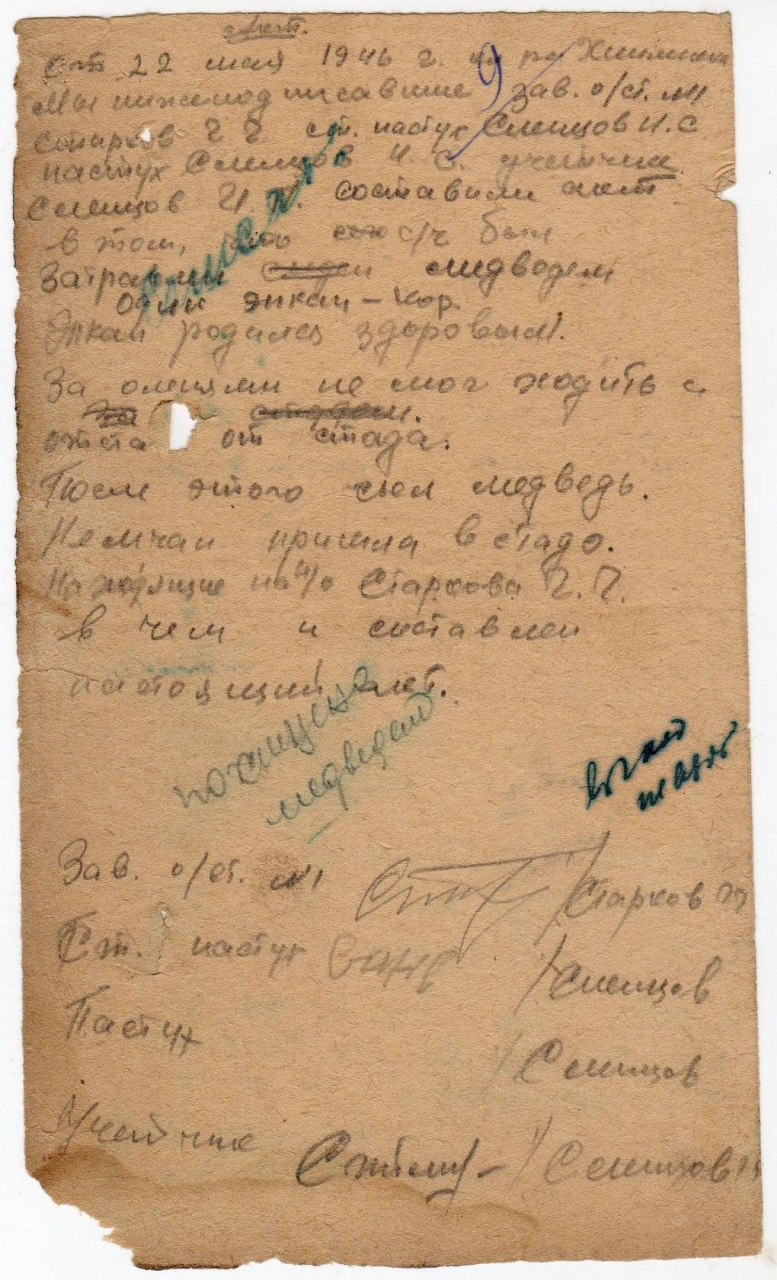 Акт.
от 22 мая 1946 г.
Мы нижеподписавшие зав. о/ст. №1
Старков Г Г ст. пастух Слепцов Н. С.
пастух Слепцов Н. С. учетчик
Слепцов И. составили акт
в том, что с/ч был
Затравлен медведем
Один энкан – кор.
Энкан родился здоровым.
За оленями не мог ходить с
от стада.
После этого съел медведь.
Немчан пришла в стадо.
Находящие на Старкова Г. Г.
в чем и составлен
настоящий акт.
похищен
медведем
Зав. о/ст. №1 /Старков ГГ
Ст. пастух /Слепцов
Пастух /Слепцов
Учетчик /Слепцов
9